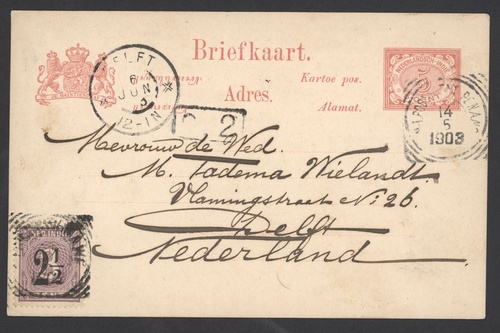 Briefkaart.
Kartoe pos.
Adres.
Alamat.
DELFT
6
JUN
3
12-1N
NEDERLANDSCH-INDIË
5
14
5
1903
Mevrouw de Wed.
M. Tadema Wielandt.
Vlamingstraat No. 26.
Delft
Nederland
2 1/2